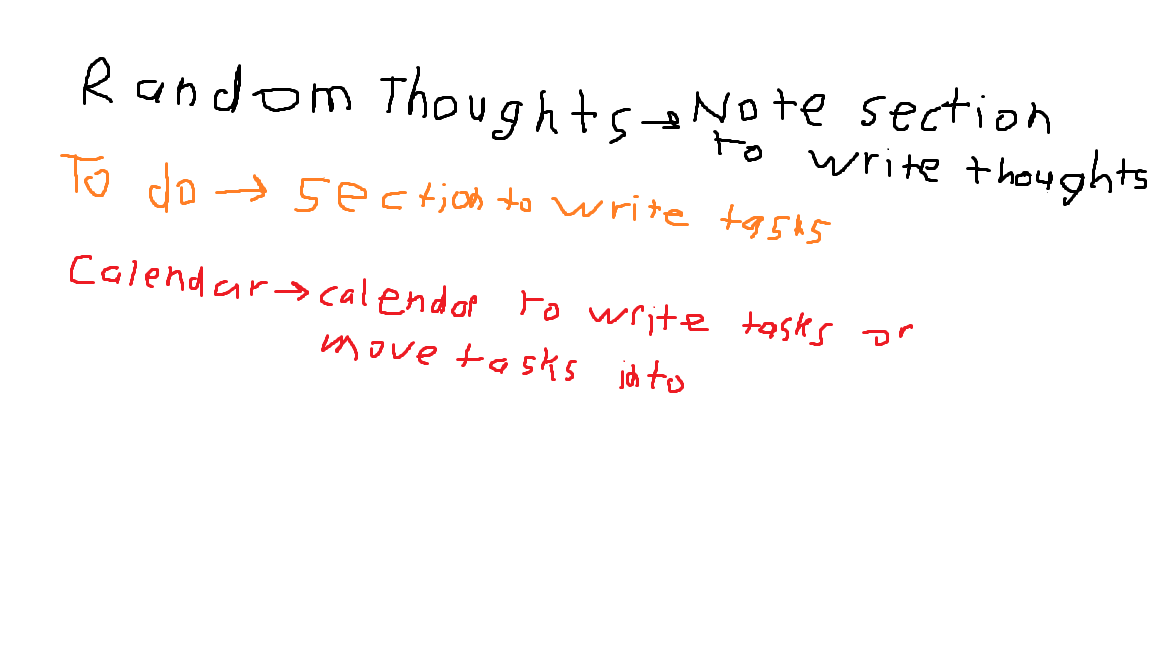 Random Thoughts → Note section
to write thoughts
To do → section to write tasks
Calendar → calendar to write tasks or
move tasks into